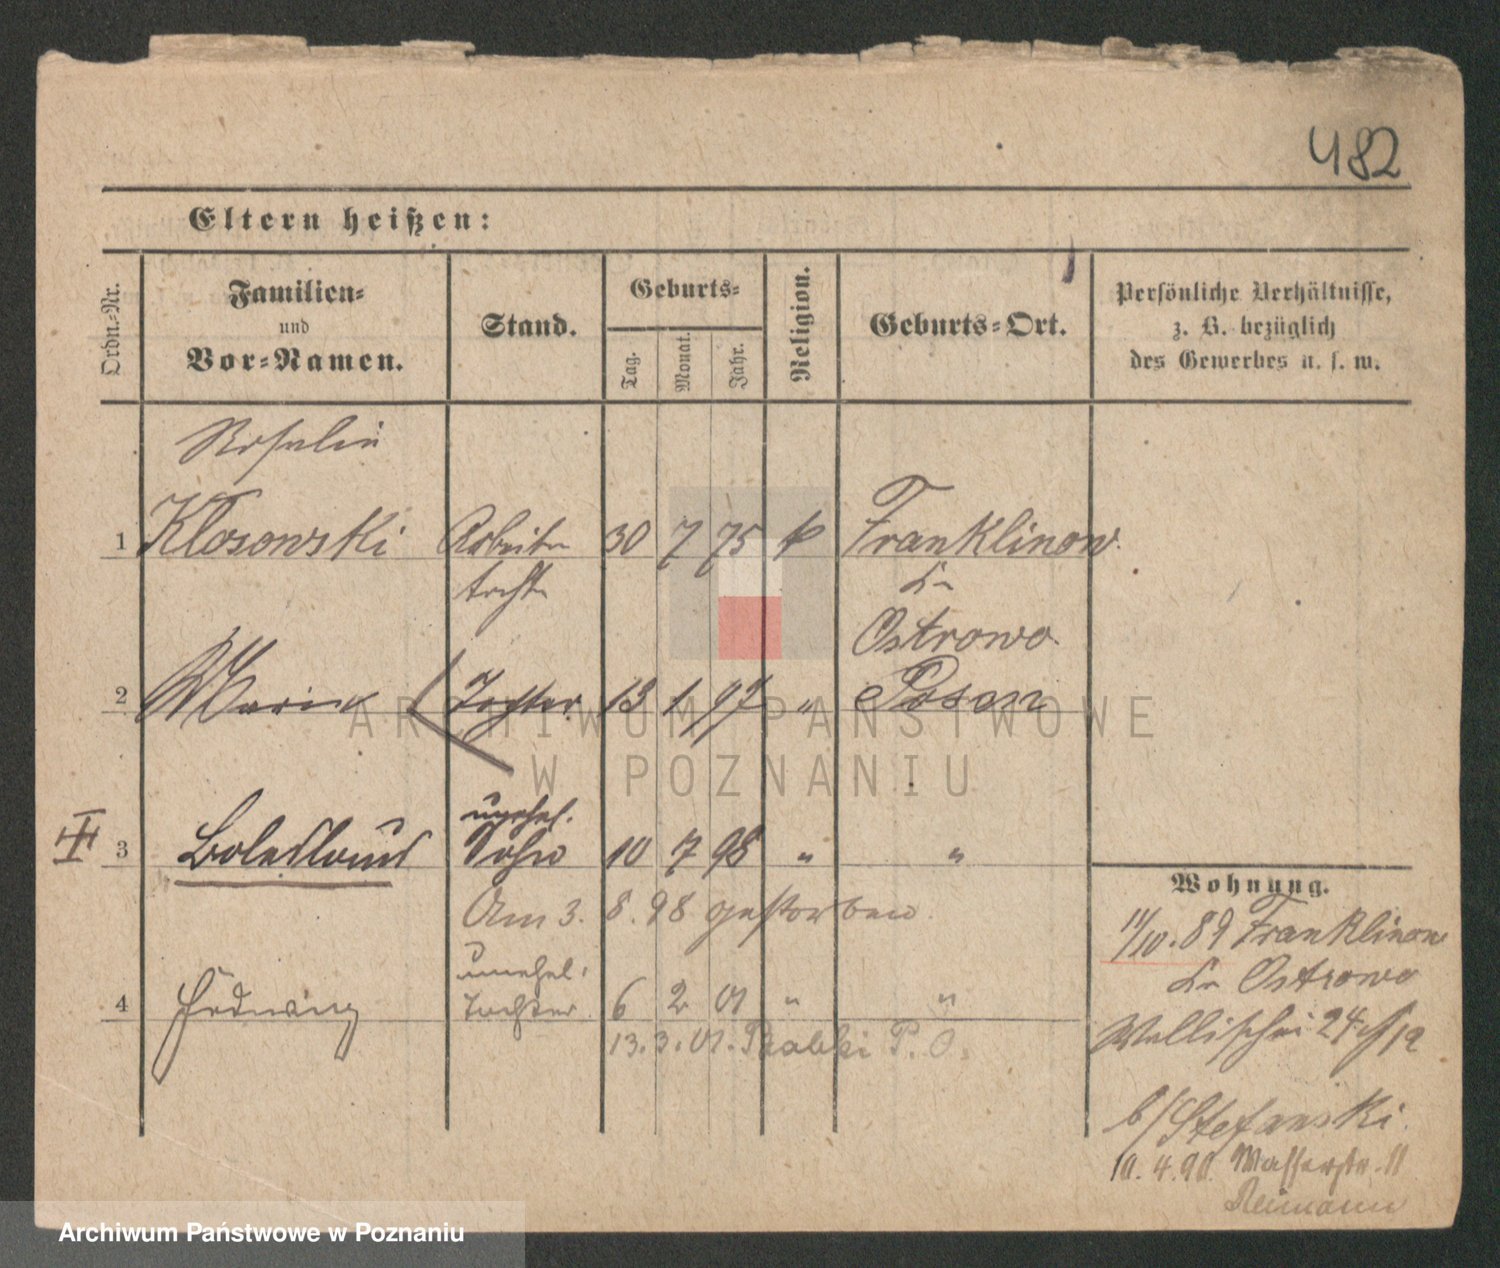 482
Eltern heißen:
Ordn.-Nr.
Familien-
und
Vor-Namen.
Stand.
Geburts-
Tag.
Monat.
Jahr.
Religion.
Geburts-Ort.
Persönliche Verhältnisse,
z. B. bezüglich
des Gewerbes u. s. w.
Rosalie
1 Klosowski Arbeiter 30 7 75 k Franklinow
tocht
Kr
Ostrowo
2 Maria Tochter 13 1 97 " Posen
unehel.
3 Boleslaus Sohn 10 7 98 " "
Am 3. 8. 98 gestorben.
unehel.
4 Tochter 6 2 01 " "
13. 3. 01. P. O.
Wohnung.
11/10. 89 Franklinow
Kr Ostrowo
Wallischei 24
b/Stefanski.
10. 4. 90. Wasserstr. 11
Neimann
ARCHIWUM PAŃSTWOWE
W POZNANIU
Archiwum Państwowe w Poznaniu